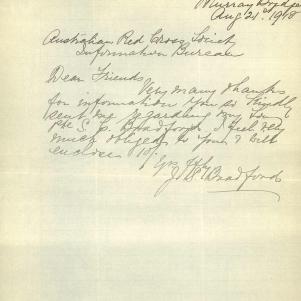 Murray Bridge
Aug 21st 1918
Australian Red Cross Society
Information Bureau
Dear Friends
Very many thanks
for information you so kindly
sent me regarding my son
Pte S. C. Bradford I feel very
much obliged to you & beg
enclose 10/-
Yrs ffly
Bradford